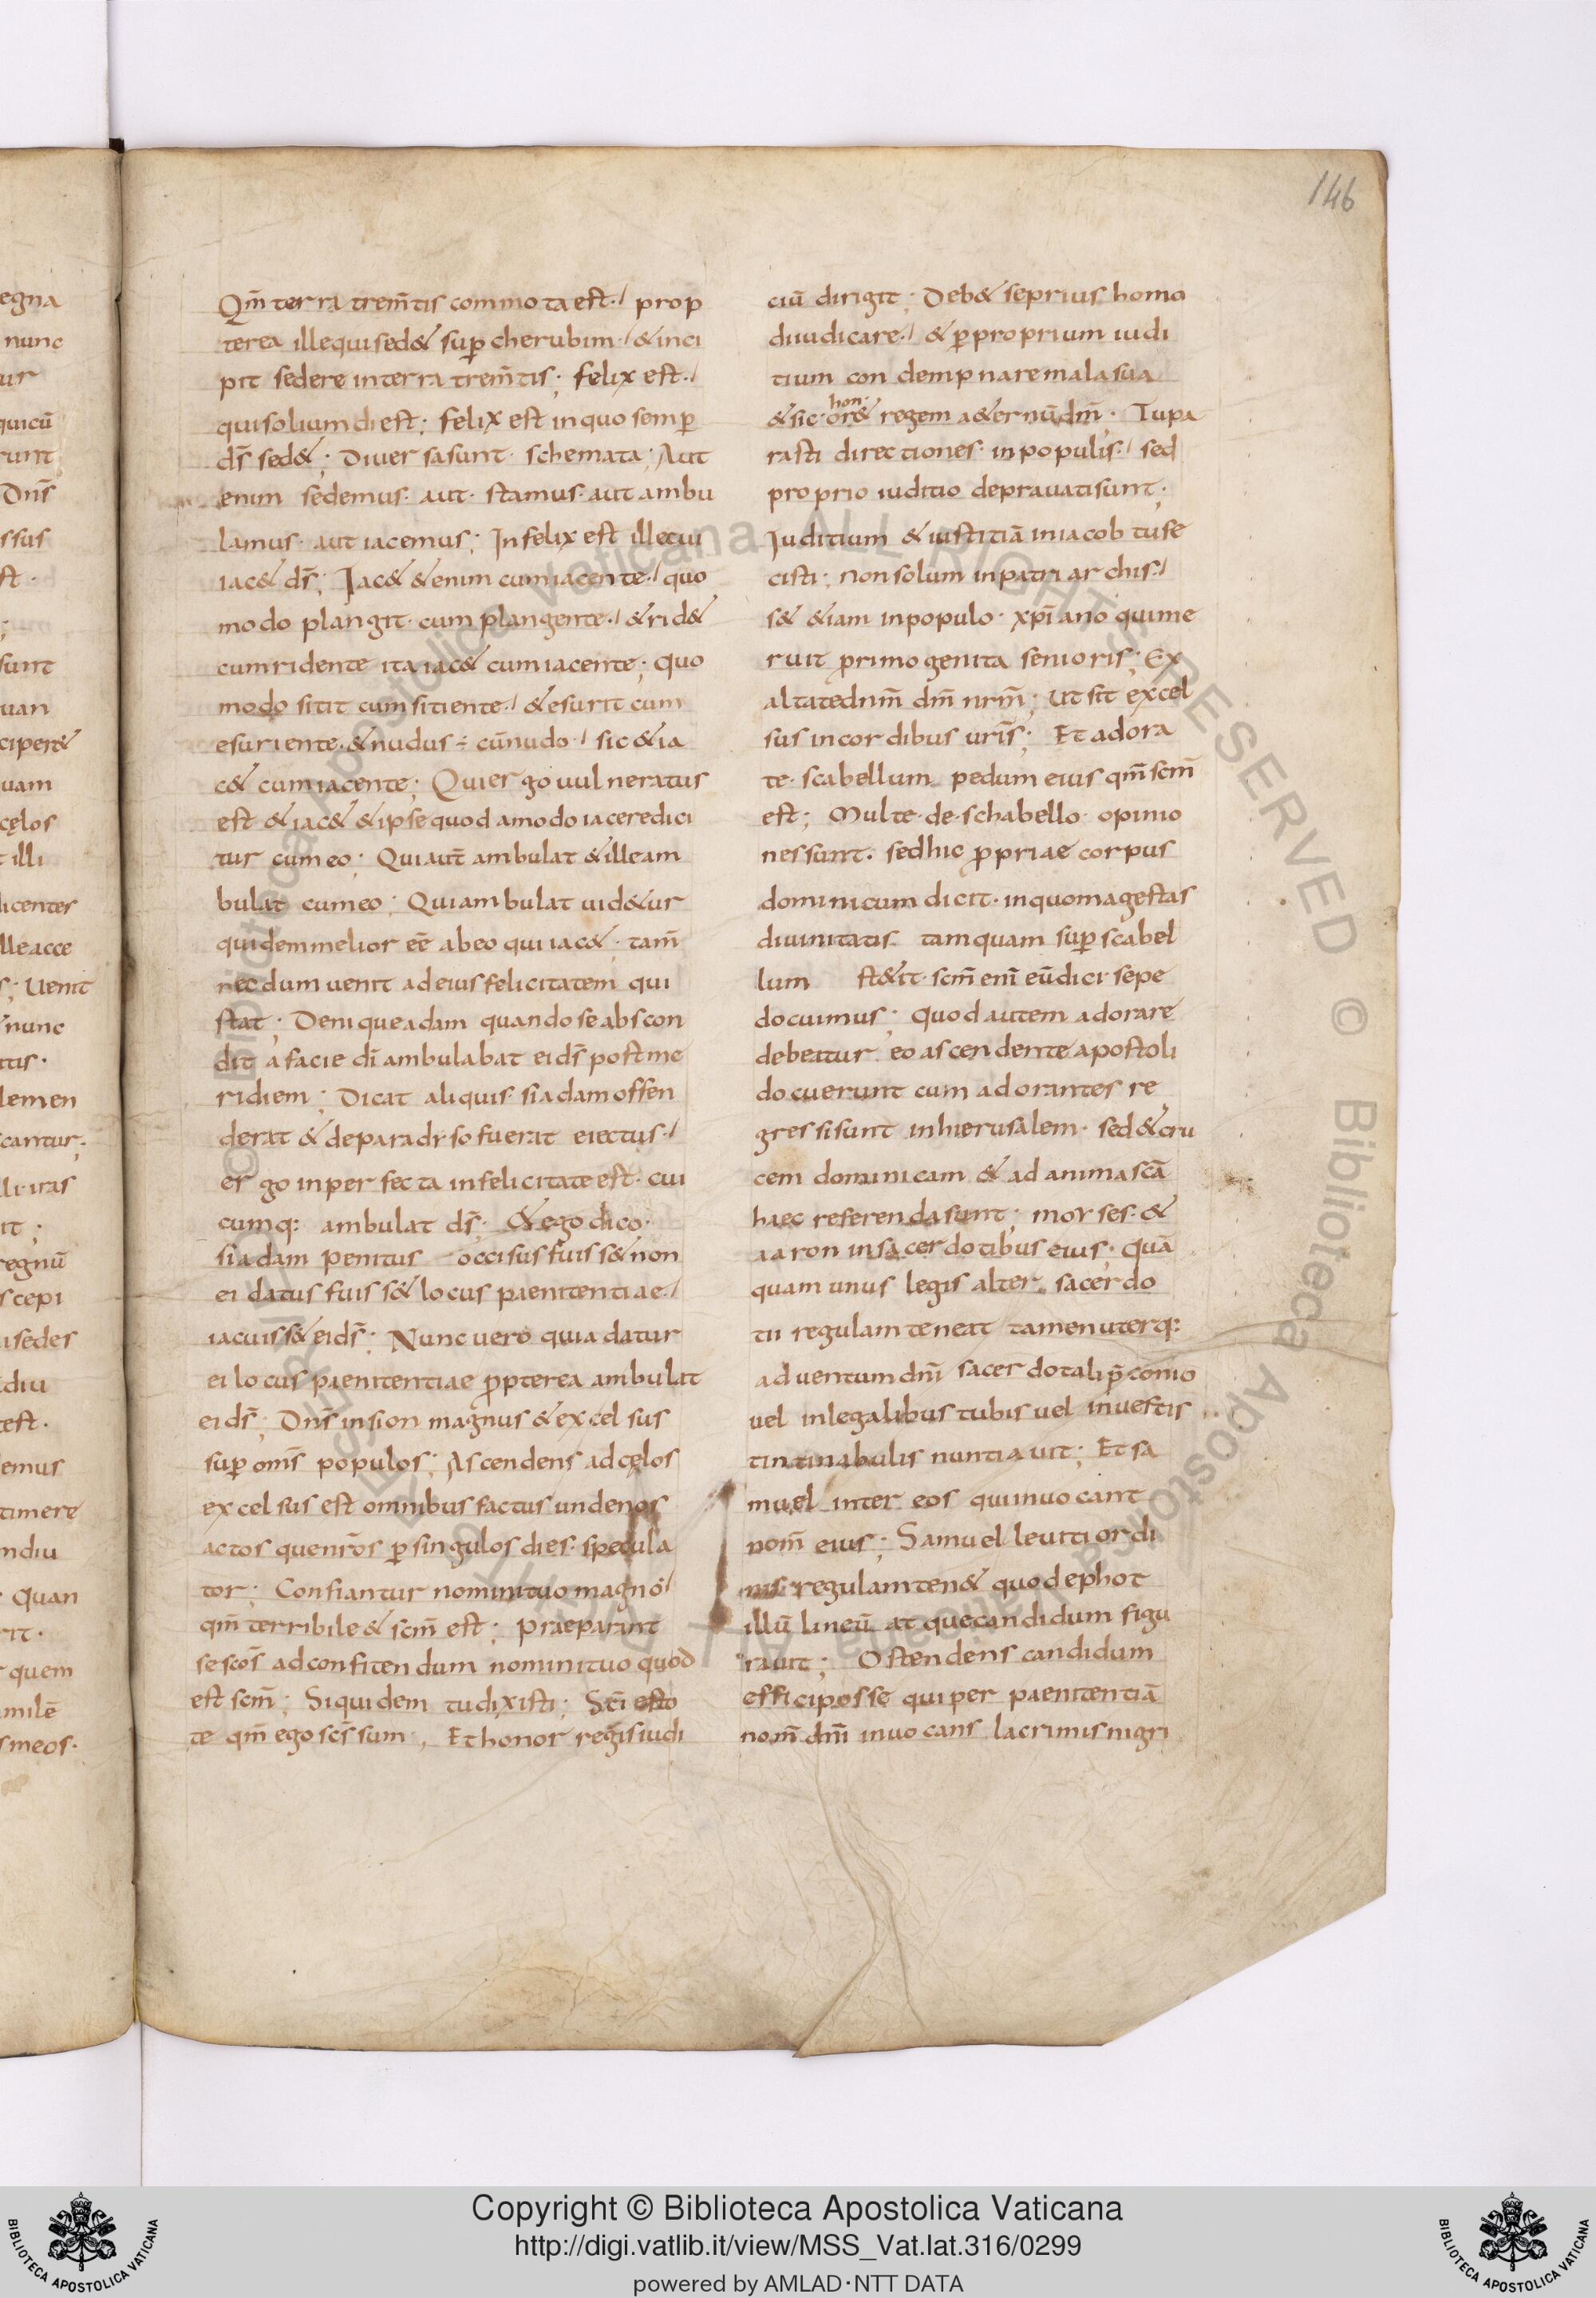 146
egna
nunc
ur
quicū
runt
Dn̄s
ssus
st.
;
sunt
uan
ciper&
uam
cęlos
t illi
licenter
lleacce
s; Uenit
nunc
tis.
lemen
cantur;
li itas
it;
regnū
scepi
isedes
diu
est.
emus
timere
ndiu
Quan
rit.
quem
milē
smeos.
Qm̄ terra trem̄tis commota est·/ prop
terea ille qui sed& sup̄ cherubim·/ & inci
pit sedere in terra trem̄tis; felix est·/
qui solium di est; felix est in quo semp̄
ds̄ sed&; Diuersa sunt· schemata; Aut
enim sedemus· aut· stamus· aut ambu
lamus· aut iacemus; Infelix est ille cui
iac& ds̄; Iac& &enim cum iacente·/ quo
modo plangit· cum plangente·/ & rid&
cum ridente ita iac& cum iacente; quo
modo sitit cum sitiente·/ & esurit cum
esuriente·& nudus ÷ cū nudo·/ sic & ia
c& cum iacente; Qui ergo uulneratus
est & iac& & ipse quodamodo iacere dici
tur cum eo; Qui aut̄ ambulat & ille am
bulat cum eo; Qui ambulat uid&ur
quidem melior eē ab eo qui iac&· tam̄
necdum uenit ad eius felicitatem qui
stat; Denique adam quando se abscon
dit a facie di ambulabat ei ds̄ post me
ridiem; Dicat aliquis· si adam offen
derat & de paradiso fuerat eiectus·/
ergo in perfecta infelicitate est· cui
cumq: ambulat ds̄· & ego dico·
si adam penitus occisus fuiss& non
ei datus fuiss& locus paenitentiae·/
iacuiss& ei ds̄; Nunc uero quia datur
ei locus pienitentiae p̄pterea ambulat
ei ds̄; Dn̄s in sion magnus & excelsus
sup̄ om̄s populos; Ascendens ad cęlos
excelsus est omnibus factus unde nos
actos quen̄ros p̄ singulos dies· specula
tor; Confiantur nomini tuo magno/
qm̄ terribile & scm̄ est; Praeparant
se scōs ad confitendum nomini tuo quod
est scm̄; Siquidem tu dixisti; Sc̄i esto
te qm̄ ego scs̄ sum; Et honor regis iudi
ciū dirigit; Deb& se prius homo
diiudicare·/ & p̄ proprium iudi
tium condempnare mala sua
& sic· hon· or& regem a&ernū dm̄; Tu pa
rasti directiones· in populis·/ sed
proprio iuditio deprauati sunt;
Iuditium & iustitiā in iacob tu fe
cisti; Non solum in patriarchis·/
s& &iam in populo· xp̄iano qui me
ruit primogenita senioris; Ex
altate dnm̄ dm̄ nrm̄; Ut sit excel
sus in cordibus uris̄; Et adora
te· scabellum pedum eius qm̄ scm̄
est; Multe· de· schabello· opinio
nes sunt· sed hic p̄priae corpus
dominicum dicit· in quo magestas
diuinitatis tamquam sup̄ scabel
lum st&it· scm̄ enī eū dici sepe
docuimus; Quod autem adorare
debeatur eo ascendente apostoli
docuerunt cum adorantes re
gressi sunt in hierusalem· sed & cru
cem dominicam & ad anima scā
haec referenda sunt; morses· &
aaron in sacerdotibus eius; Quā
quam unus legis alter sacerdo
tii regulam teneat tamen uterq:
aduentum dni sacerdotali p̄conio
uel in legalibus tubis uel in uestis
tintinabulis nuntiauit; Et sa
muel inter eos qui inuocant
nom̄ eius; Samuel leuitiordi
nis regulam ten& quod ephot
illū lineū atque candidum figu
rauit; Ostendens candidum
effici posse qui per paenitentiā
nom̄ dni inuocans lacrimis nigri
© Biblioteca Apostolica Vaticana ALL RIGHTS RESERVED © Biblioteca Apostolica Vaticana ALL RIGHTS RESERVED
Copyright © Biblioteca Apostolica Vaticana
http://digi.vatlib.it/view/MSS_Vat.lat.316/0299
powered by AMLAD·NTT DATA
BIBLIOTECA APOSTOLICA VATICANA
BIBLIOTECA APOSTOLICA VATICANA